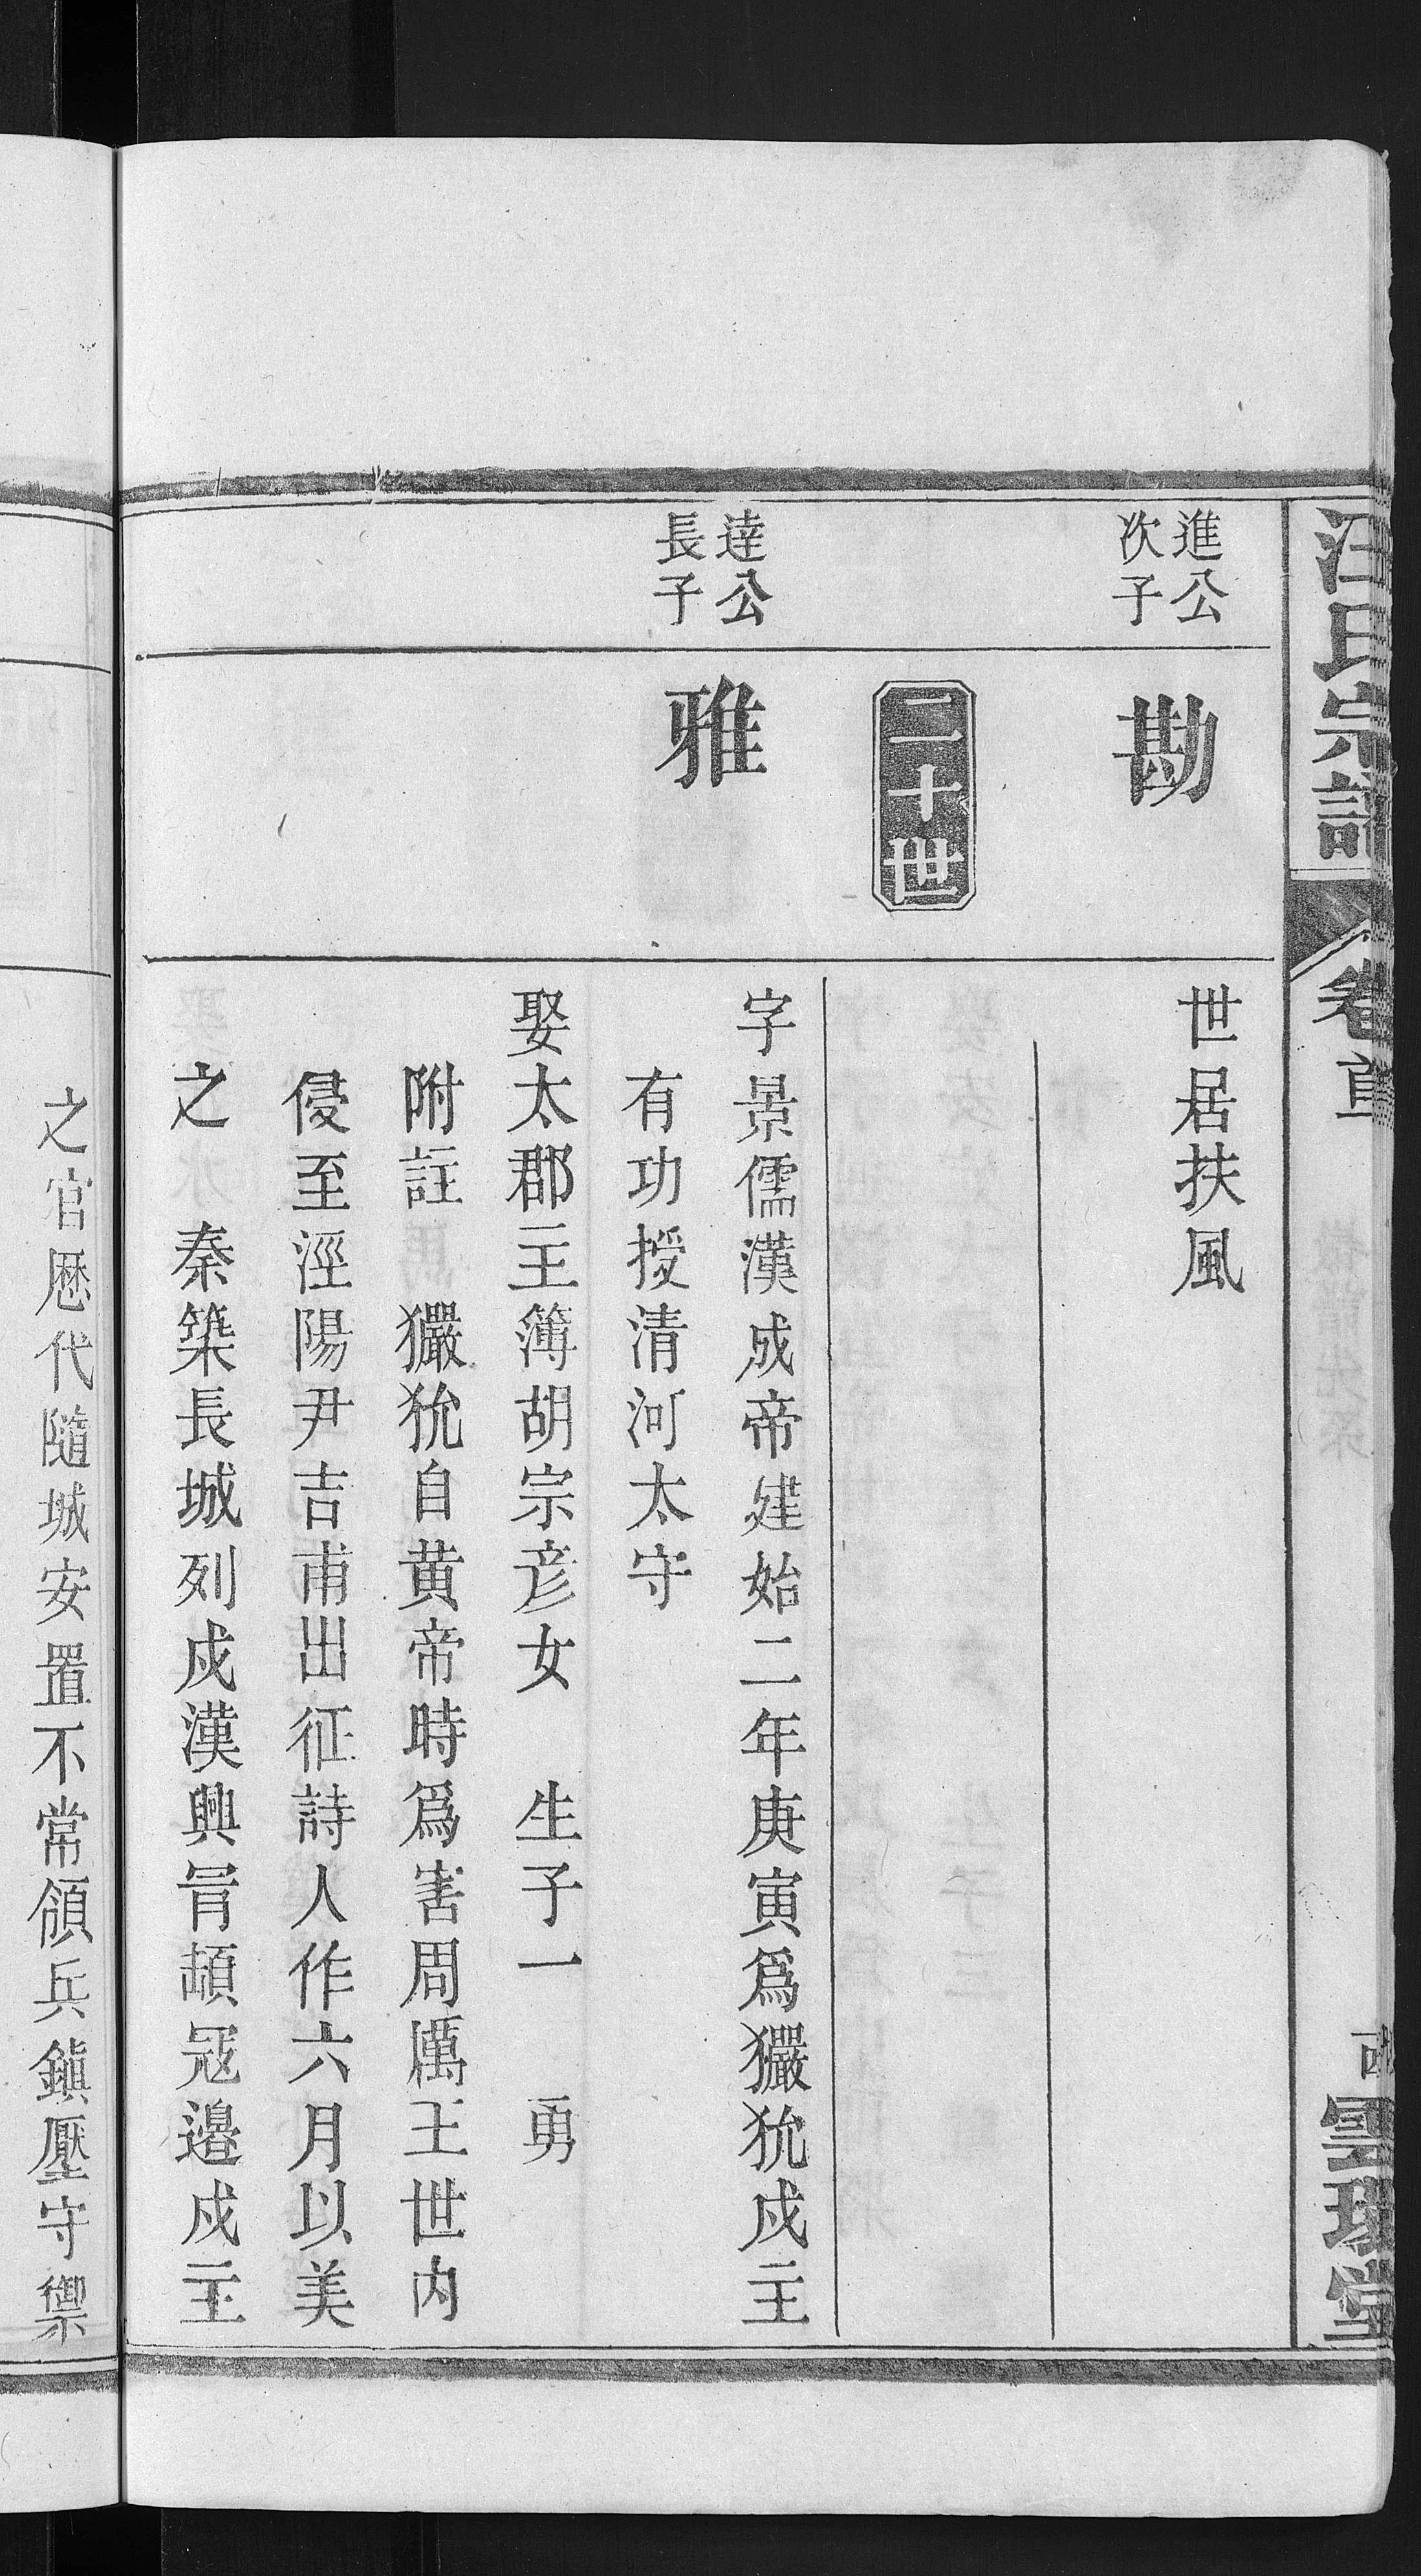 汪氏宗譜
卷首
墨環堂
進公
次子
勘
世居扶風
二十世
達公
長子
雅
字景儒漢成帝建始二年庚寅爲玁狁戍主
有功授清河太守
娶太郡主簿胡宗彦女　生子一　勇
附註　玁狁自黄帝時爲害周厲王世内
侵至涇陽尹吉甫出征詩人作六月以美
之　秦築長城列戍漢興冐頓冦邉戍主
之官厯代隨城安置不常領兵鎭壓守禦